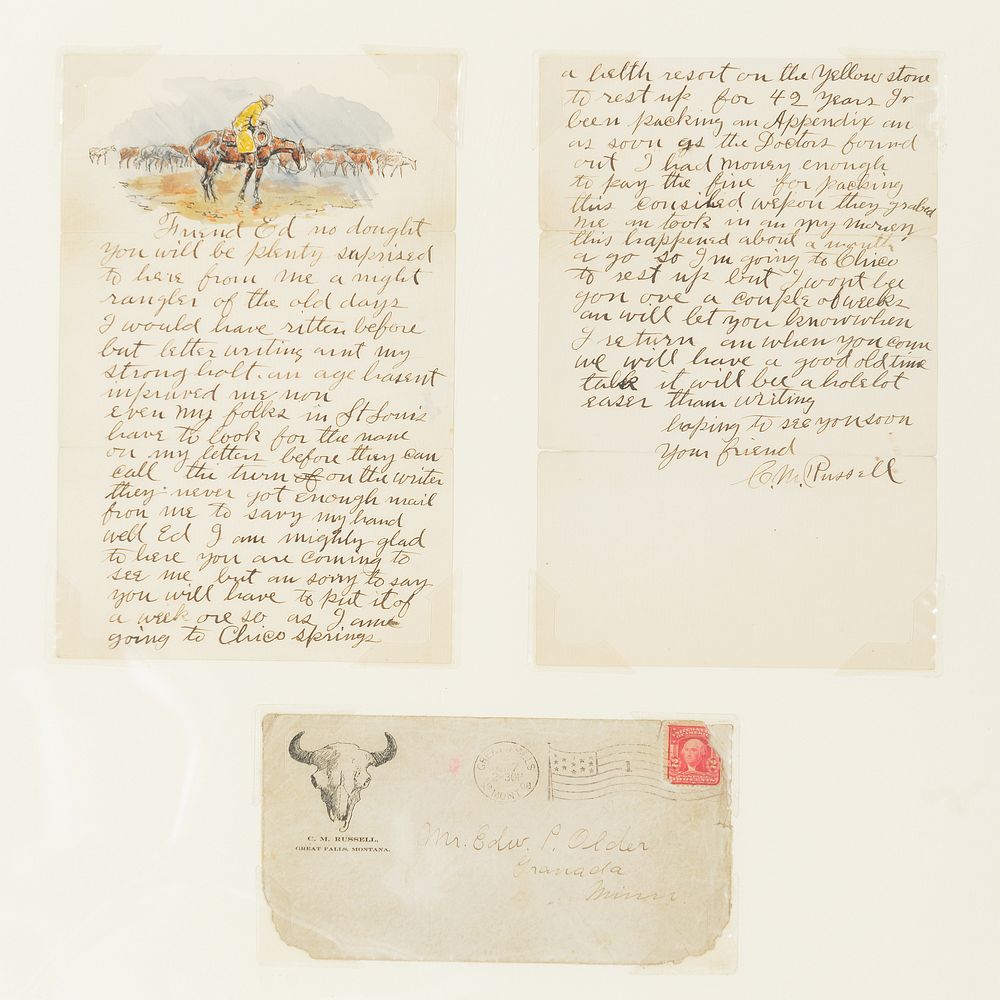 Friend Ed no dought
you will be plenty suprised
to here from me a night
rangler of the old days
I would have ritten before
but letter writing aint my
strong holt. an age hasent
improved me non
even my folks in St Louis
have to look for the name
on my letters before they can
call the turn of on the writer
they never got enough mail
from me to savy my hand
well Ed I am mighty glad
to here you are coming to
see me but am sorry to say
you will have to put it of
a week ore so as I am
going to Chico springs
a helth resort on the Yellowstone
to rest up for 42 years Iv
been packing an Appendix an
as soon as the Doctors found
out I had money enough
to pay the fine for packing
this consiled wepon they grabed
me an took in an my money
this happened about a month
a go so I'm going to Chico
to rest up but I wont be
gon ove a couple of weeks
an will let you know when
I return an when you com
we will have a good old time
talk it will bee a hole lot
easer tham writing
hoping to see you soon
Your friend
C. M. Russell
C. M. RUSSELL,
GREAT FALLS, MONTANA.
GREAT FALLS
2-30P
1908
MONT.
1
UNITED STATES
OF AMERICA
2 2
Mr. Edw. P. Older
Granada
Minn.